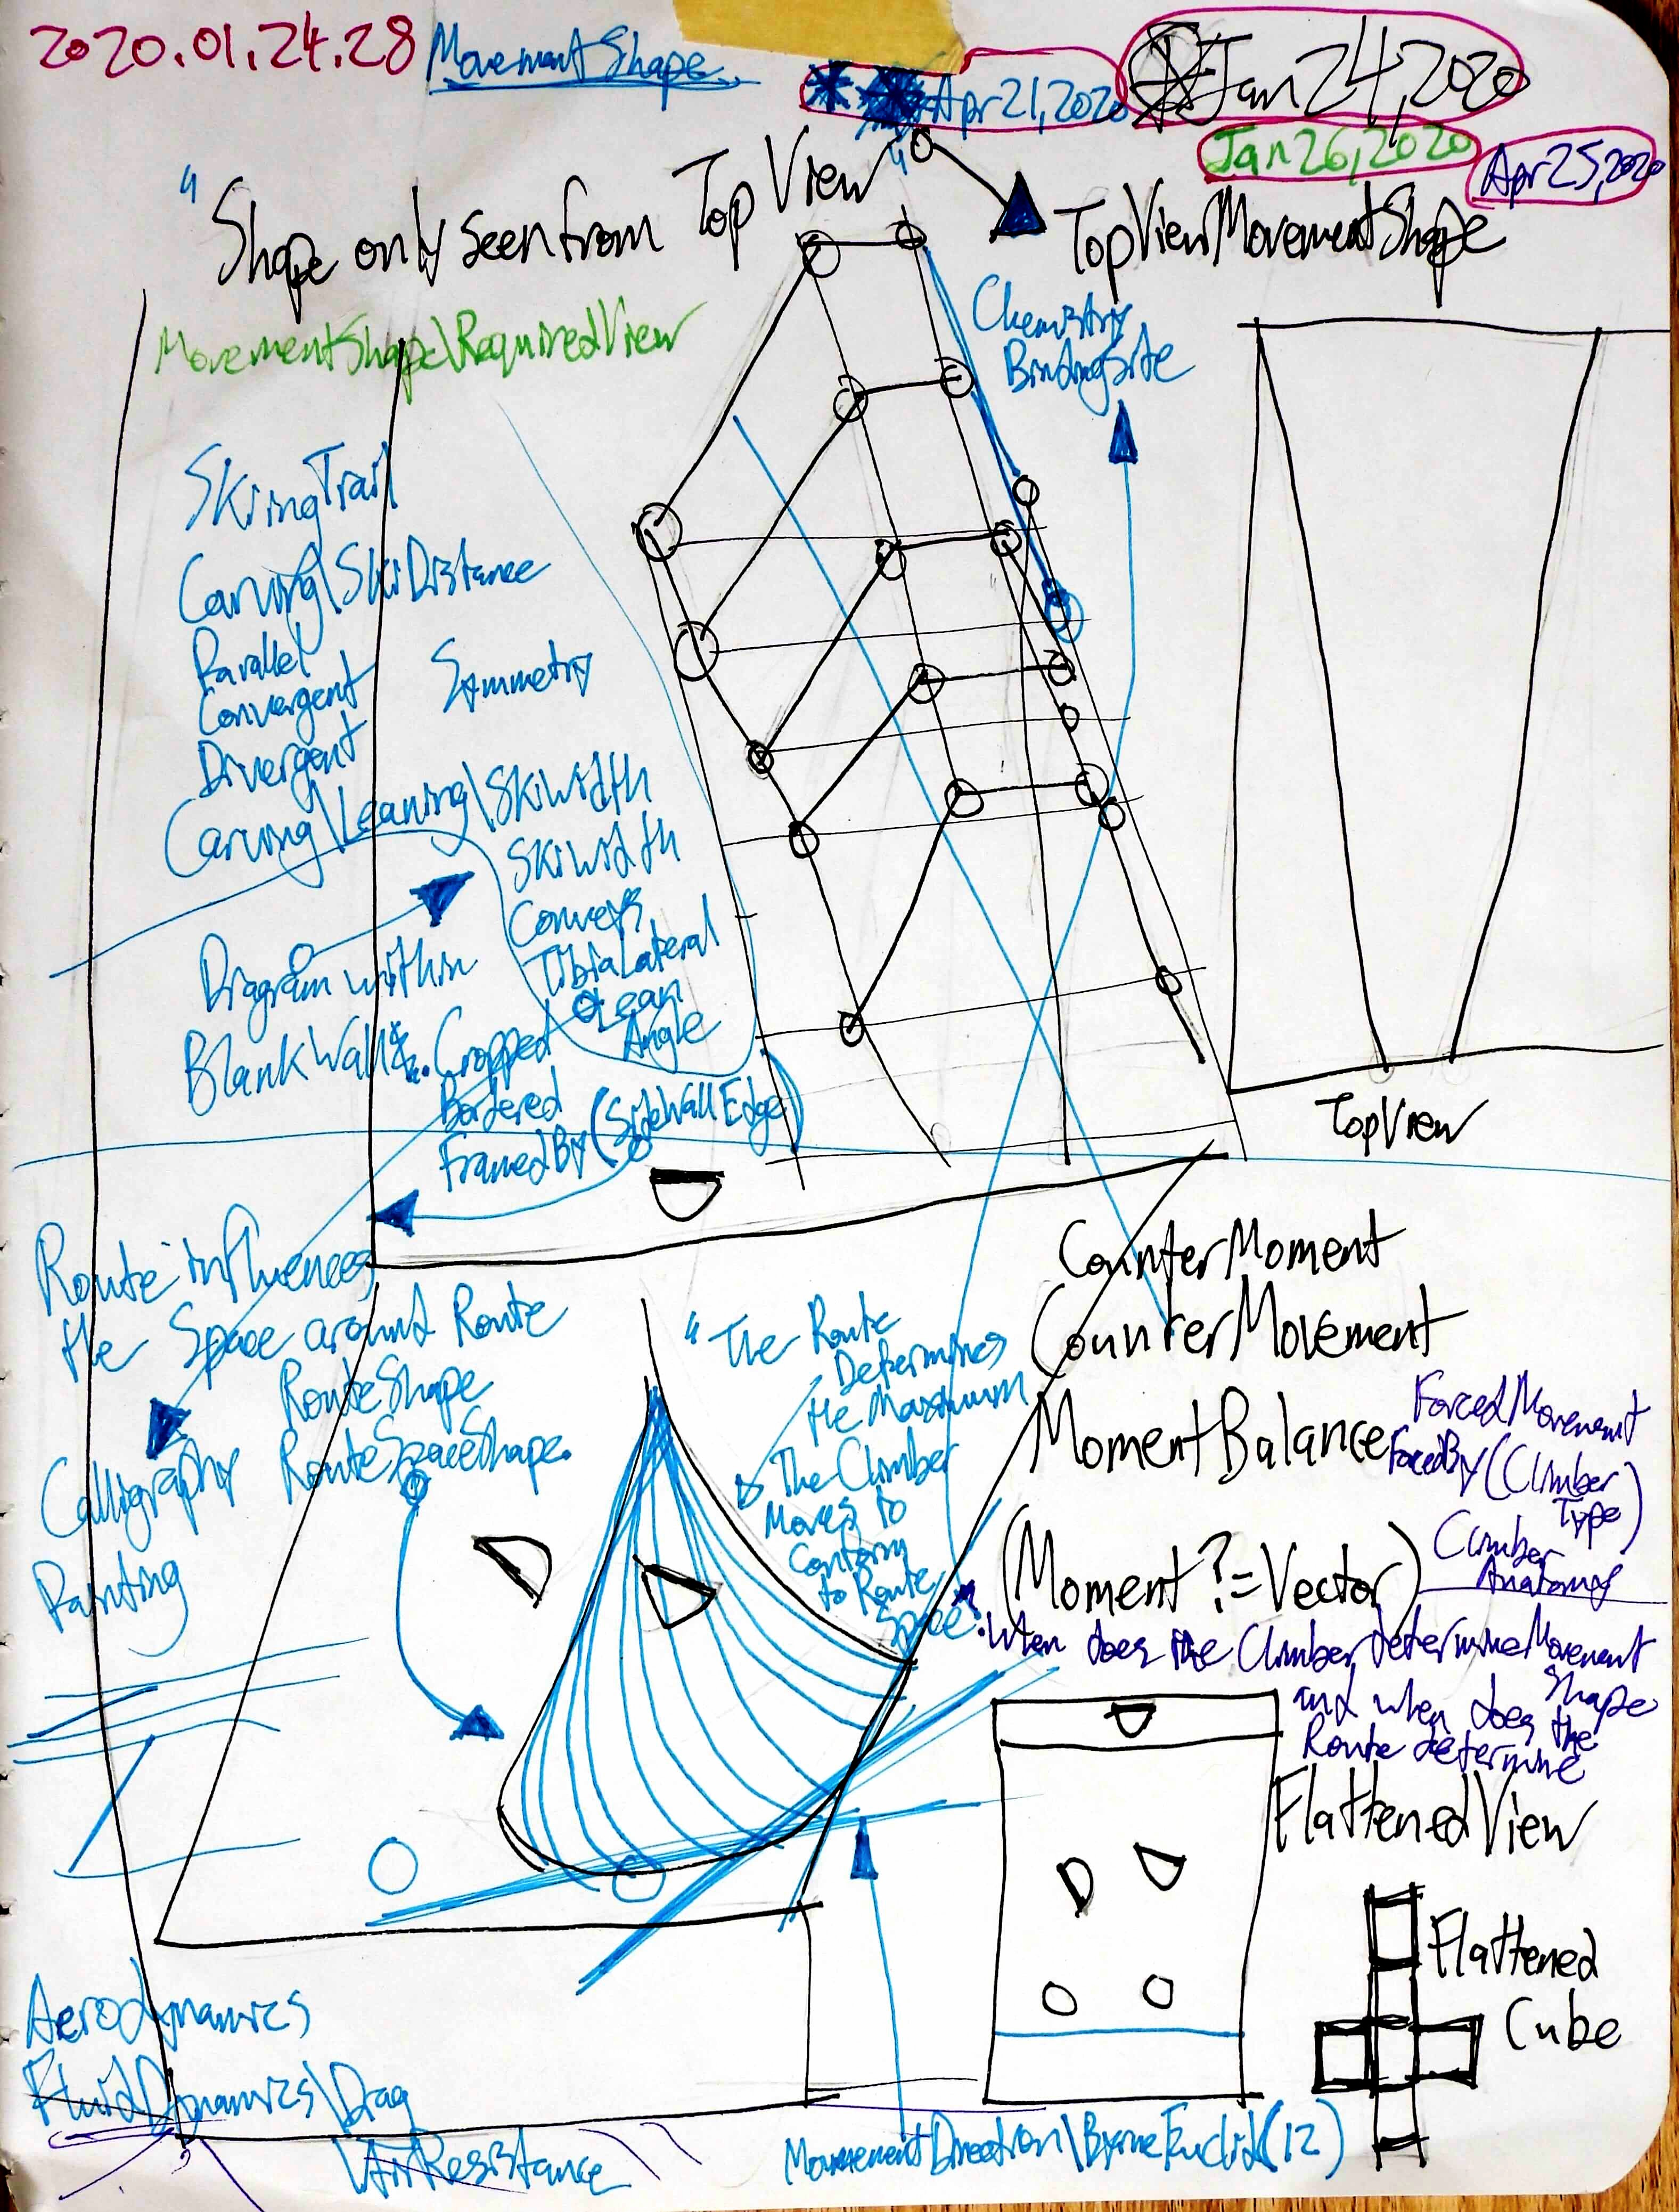 2020.01.24.28
MovementShape
Apr 21, 2020
Jan 24, 2020
Jan 26, 2020
Apr 25, 2020
"Shape only seen from Top View"
TopViewMovementShape
MovementShape\RequiredView
Chemistry
BindingSite
SkiingTrail
Carving\SkiDistance
Parallel
Convergent
Divergent
Symmetry
Carving\Leaning\SkiWidth
SkiWidth
Conveys
TibiaLateral
Lean
Angle
Diagram within
BlankWall
Cropped
Bordered
FramedBy(SideWallEdge)
TopView
Route influences
the Space around Route
RouteShape
RouteSpaceShape.
Calligraphy
Painting
"The Route
Determines
the Maximum
The Climber
Moves to
Conform
to Route
Space"
CounterMoment
CounterMovement
MomentBalance
(Moment ?= Vector)
ForcedMovement
ForcedBy(Climber
Type)
Climber
Anatomy
When does the Climber determine Movement
Shape
and when does the
Route determine
FlattenedView
Flattened
Cube
Aerodynamics
FluidDynamics\Drag
\AirResistance
MovementDirection\ByrneEuclid(12)